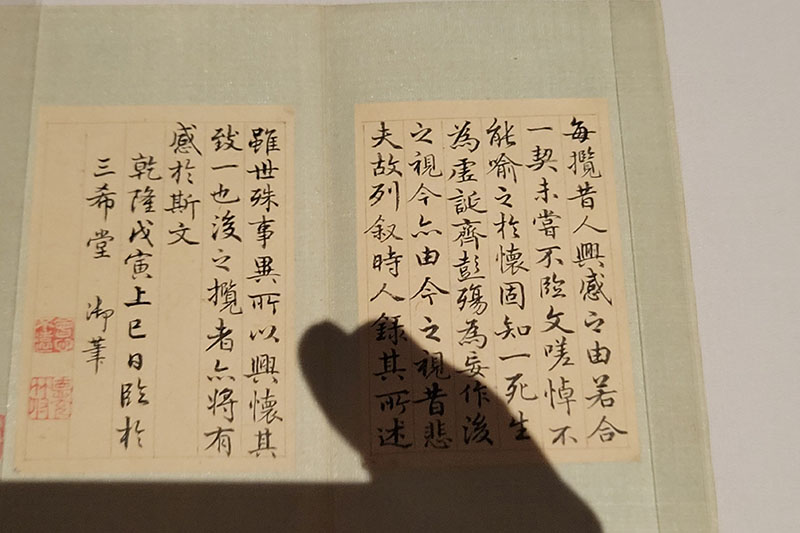 每攬昔人興感之由若合
一契未嘗不臨文嗟悼不
能喻之於懷固知一死生
為虛誕齊彭殤為妄作後
之視今亦由今之視昔悲
夫故列叙時人錄其所述
雖世殊事異所以興懷其
致一也後之攬者亦將有
感於斯文
乾隆戊寅上巳日臨於
三希堂 御筆